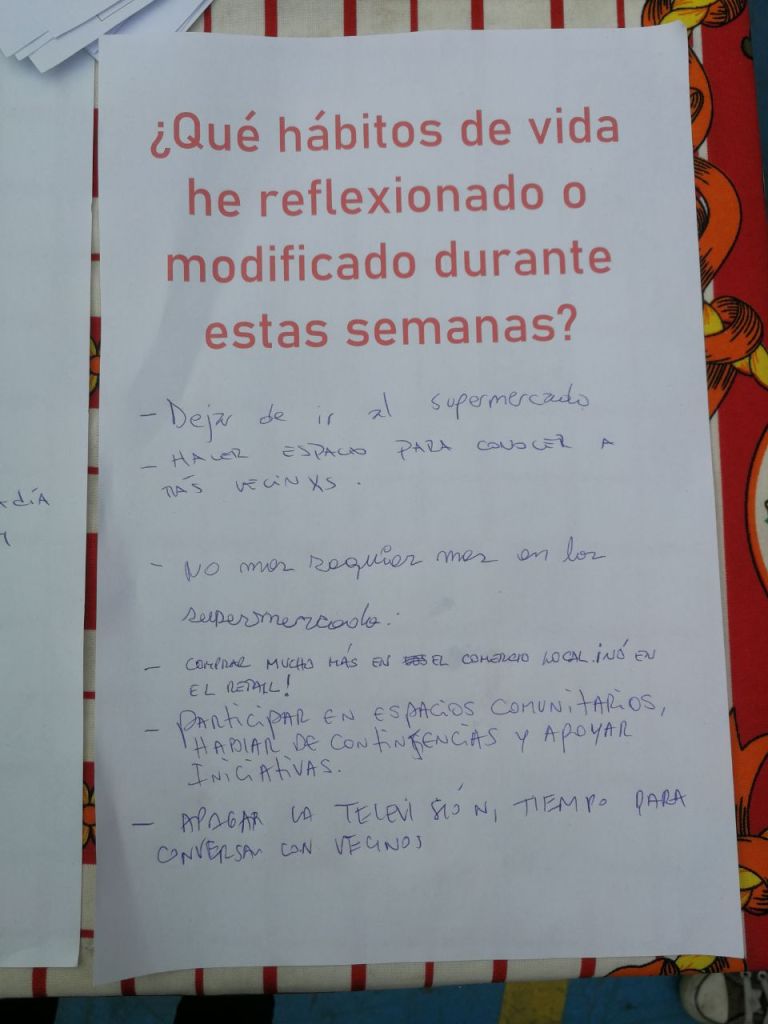 ¿Qué hábitos de vida
he reflexionado o
modificado durante
estas semanas?
- Dejar de ir al supermercado
- HACER ESPACIO PARA CONOCER A
MÁS VECINXS.
- NO mas mas en los
supermercado.
- COMPRAR MUCHO MÁS EN EL COMERCIO LOCAL. ¡NO EN
EL RETAIL!
- PARTICIPAR EN ESPACIOS COMUNITARIOS,
HABLAR DE CONTINGENCIAS Y APOYAR
INICIATIVAS.
- APAGAR LA TELEVISIÓN, TIEMPO PARA
CONVERSAR CON VECINOS
ADÍA